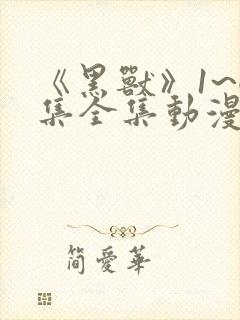 《黑獸》1~
集全集動漫
簡愛華